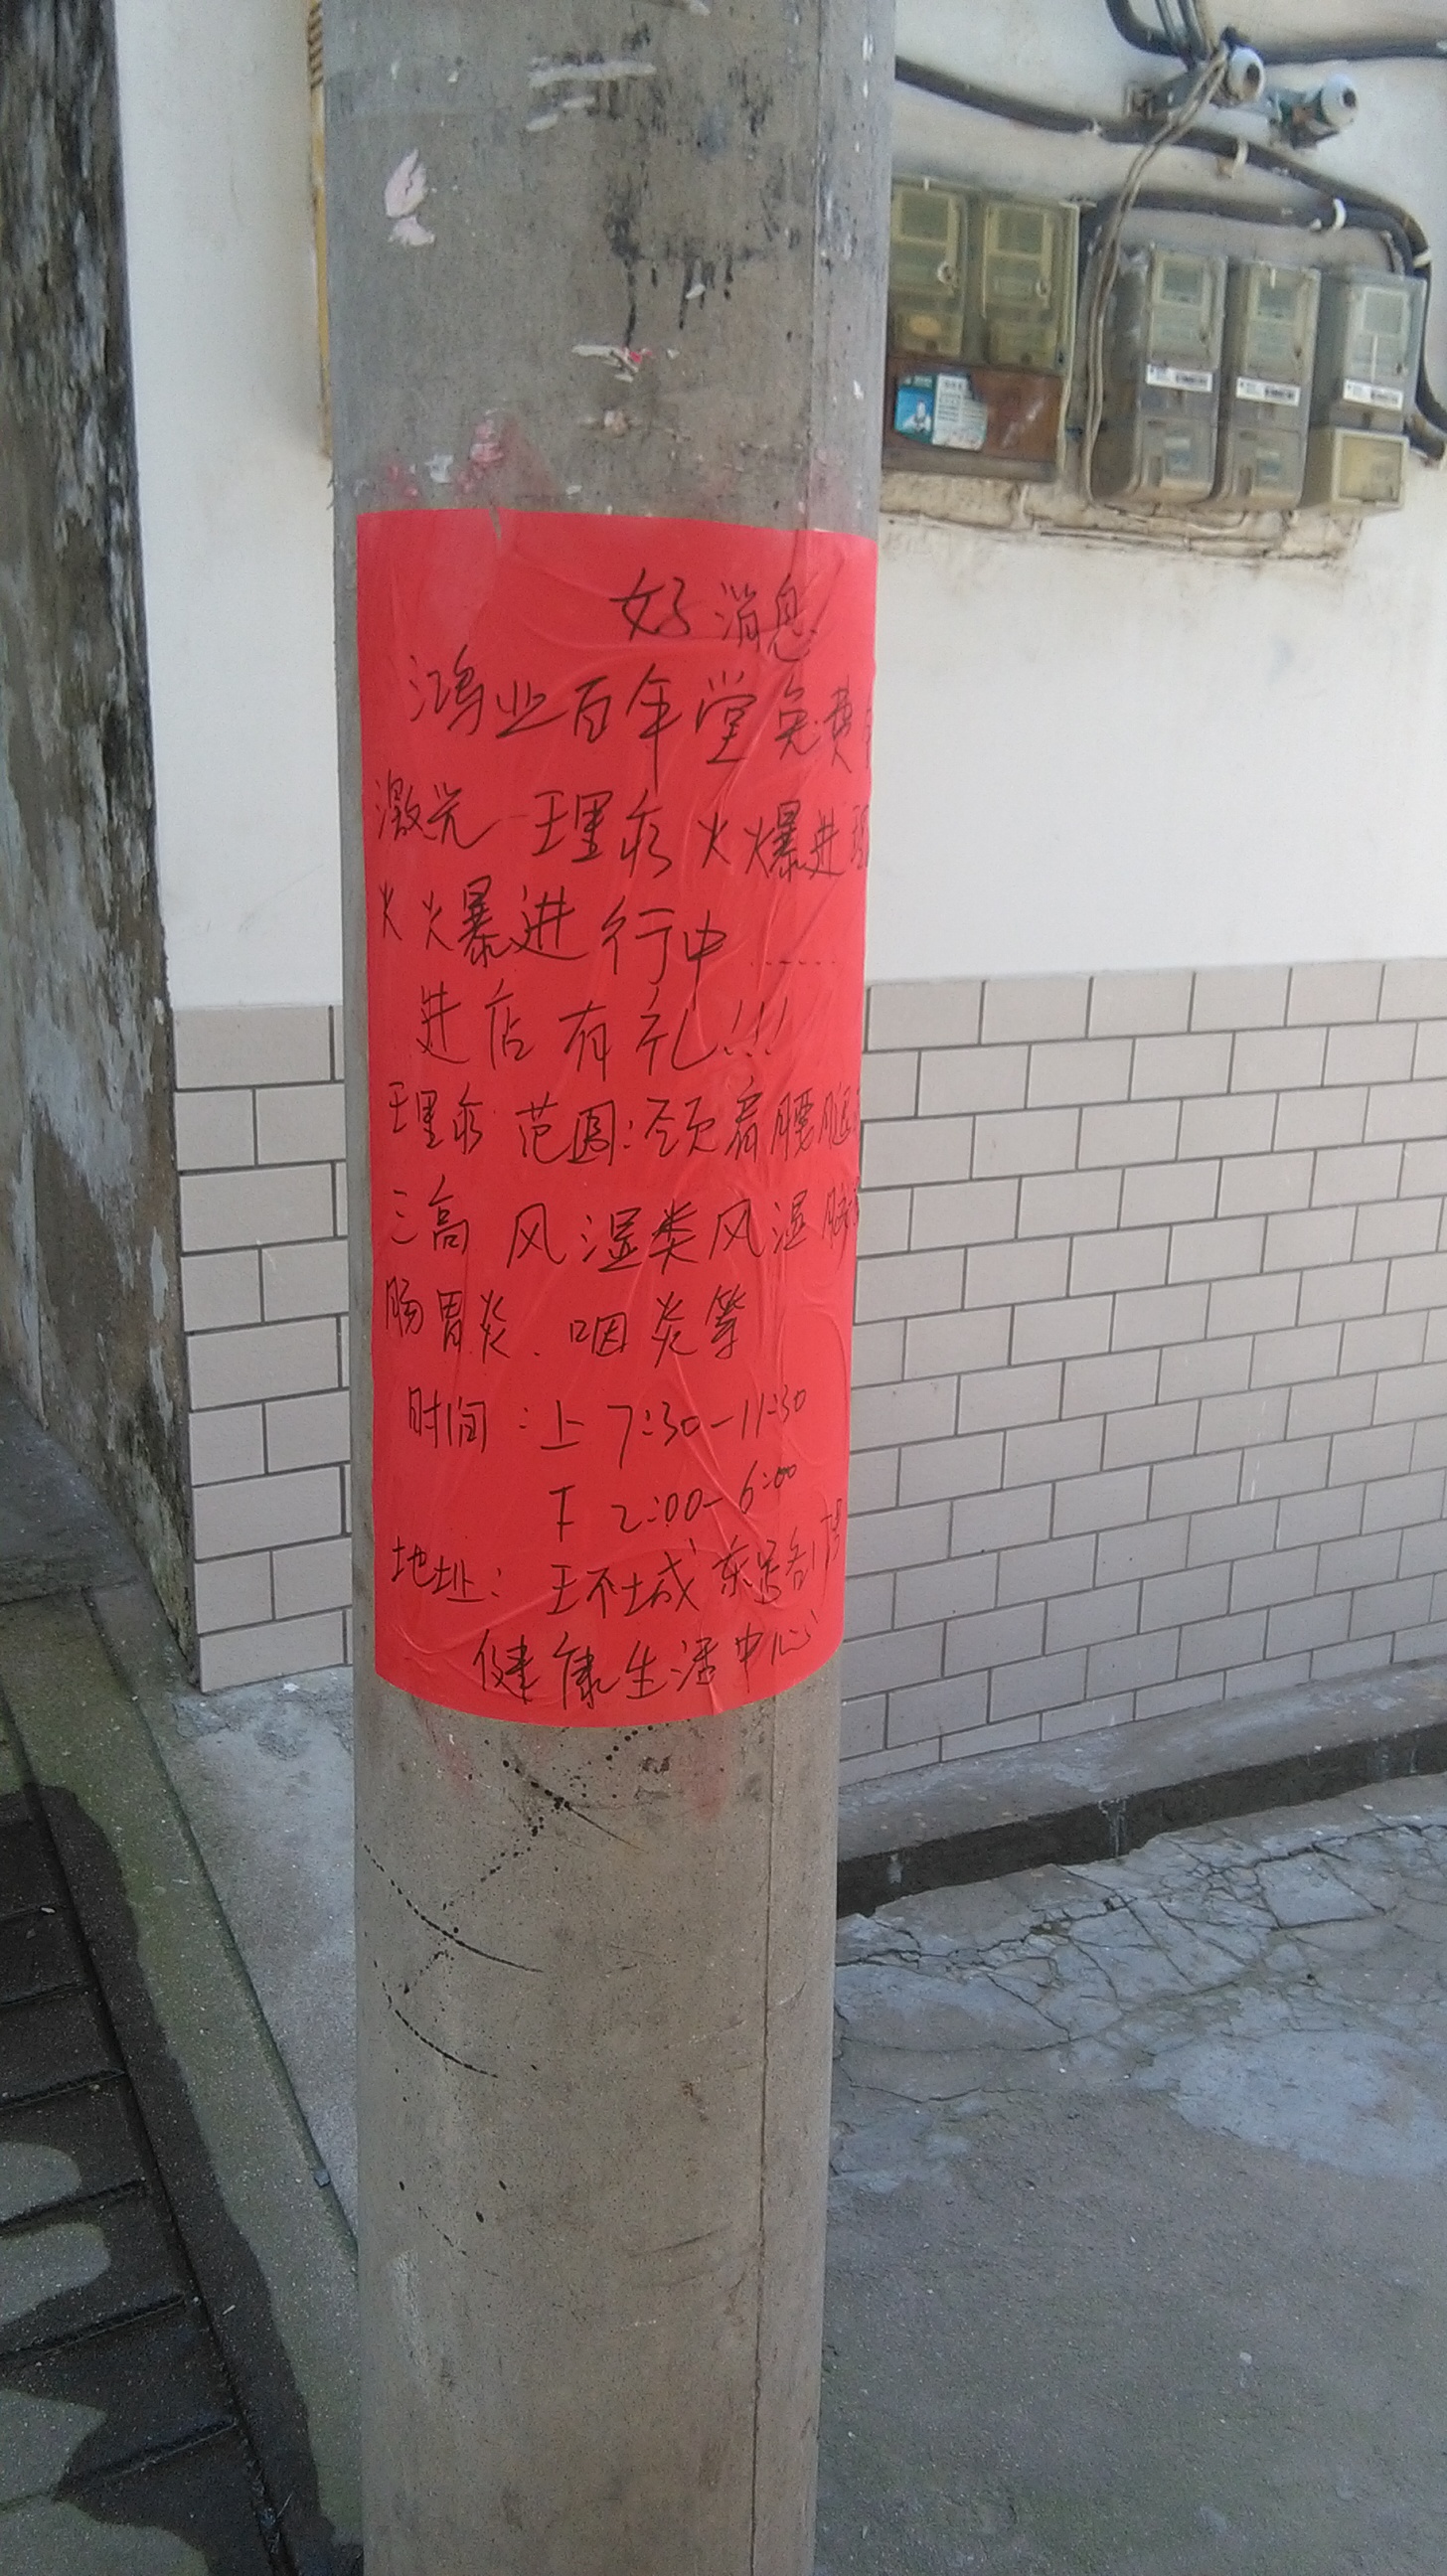 好消息
鸿业百年堂免费
激光理疗火爆进
火火爆进行中......
进店有礼!!!
理疗范围:颈肩腰腿
三高 风湿类风湿
肠胃炎、咽炎等
时间:上 7:30-11:30
下 2:00-6:00
地址:王不城东
健康生活中心